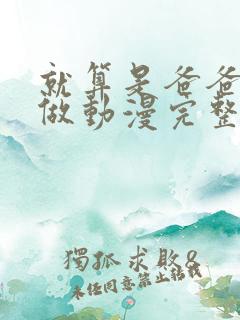 就算是爸爸
做動漫完整
獨孤求敗8
未經同意禁止轉載